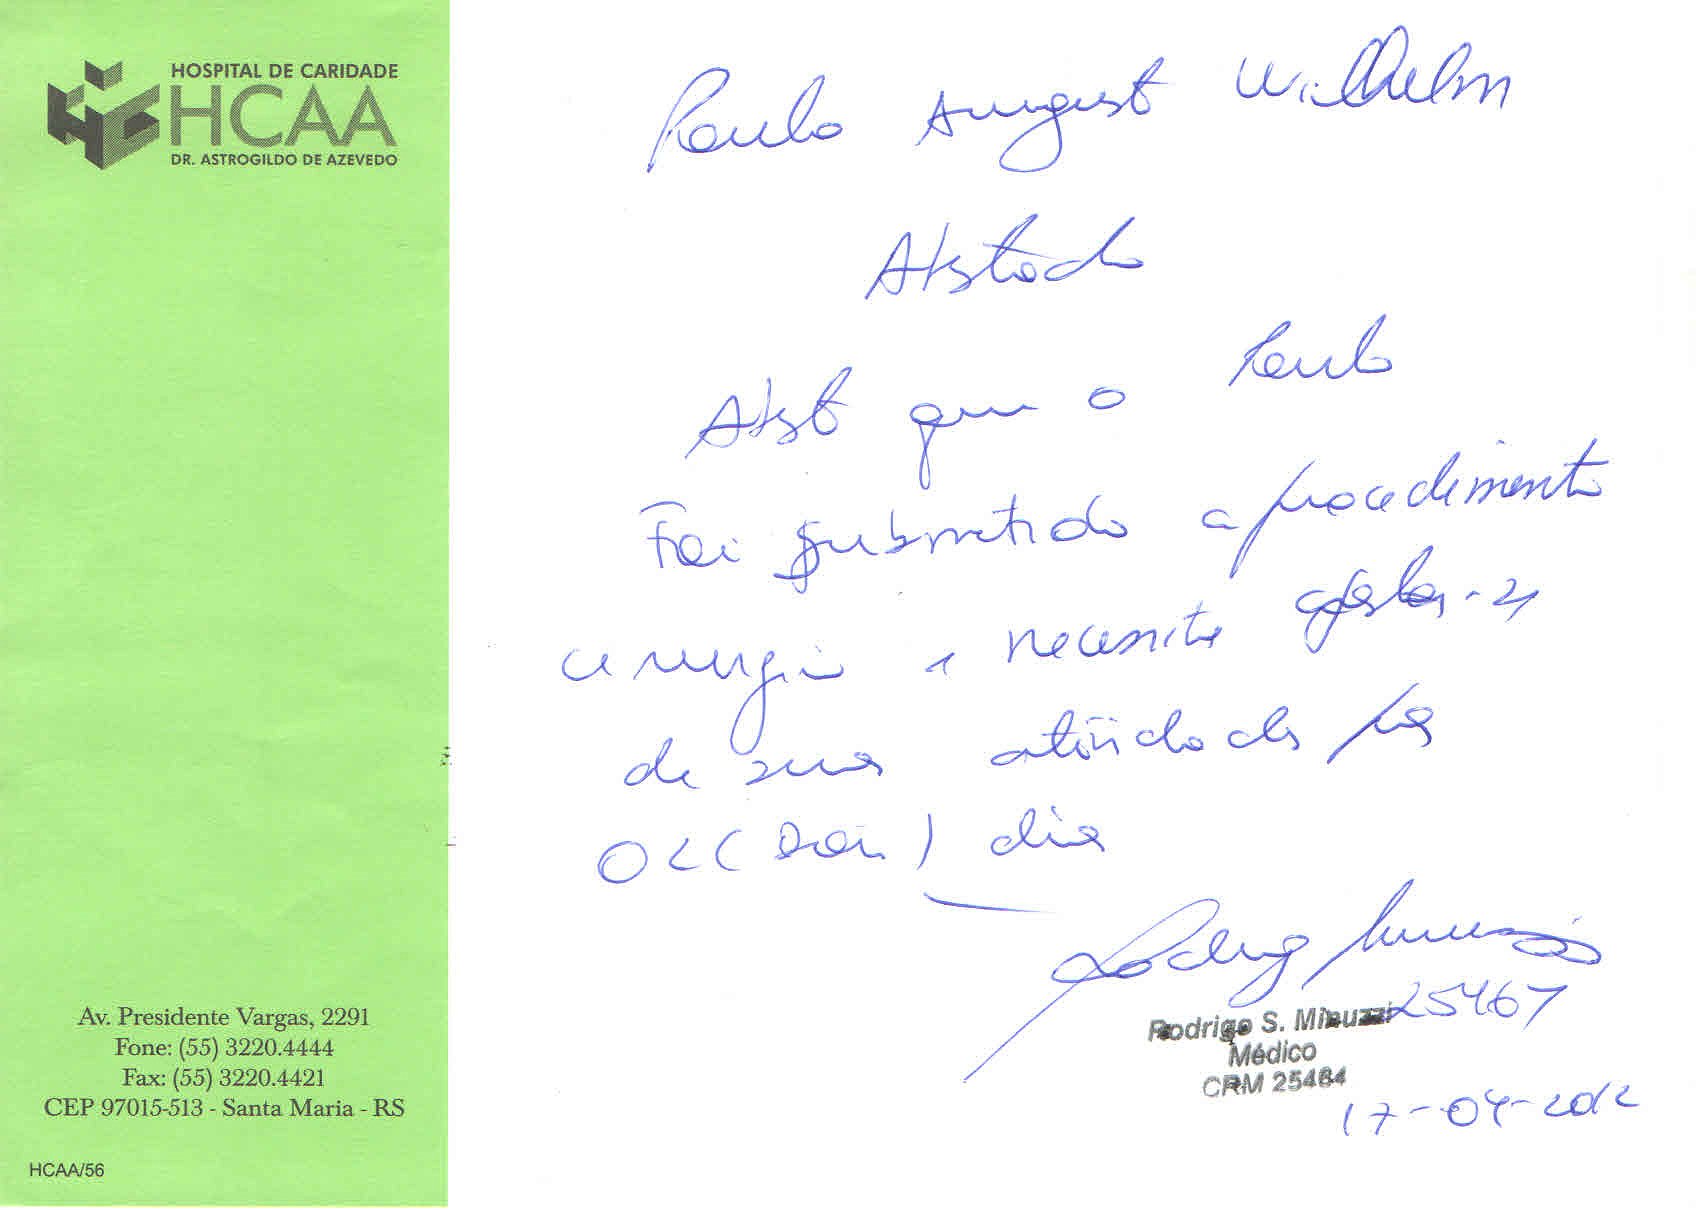 HOSPITAL DE CARIDADE
HCAA
DR. ASTROGILDO DE AZEVEDO
Paulo August Wilhelm
Atestado
Atesto que o Paulo
Foi submetido a procedimento
cirurgia e necessita afastar-se
de suas atividades por
02 (dois) dias
Rodrigo Minuzzi
25467
Rodrigo S. Minuzzi
Médico
CRM 25464
17-04-2012
Av. Presidente Vargas, 2291
Fone: (55) 3220.4444
Fax: (55) 3220.4421
CEP 97015-513 - Santa Maria - RS
HCAA/56